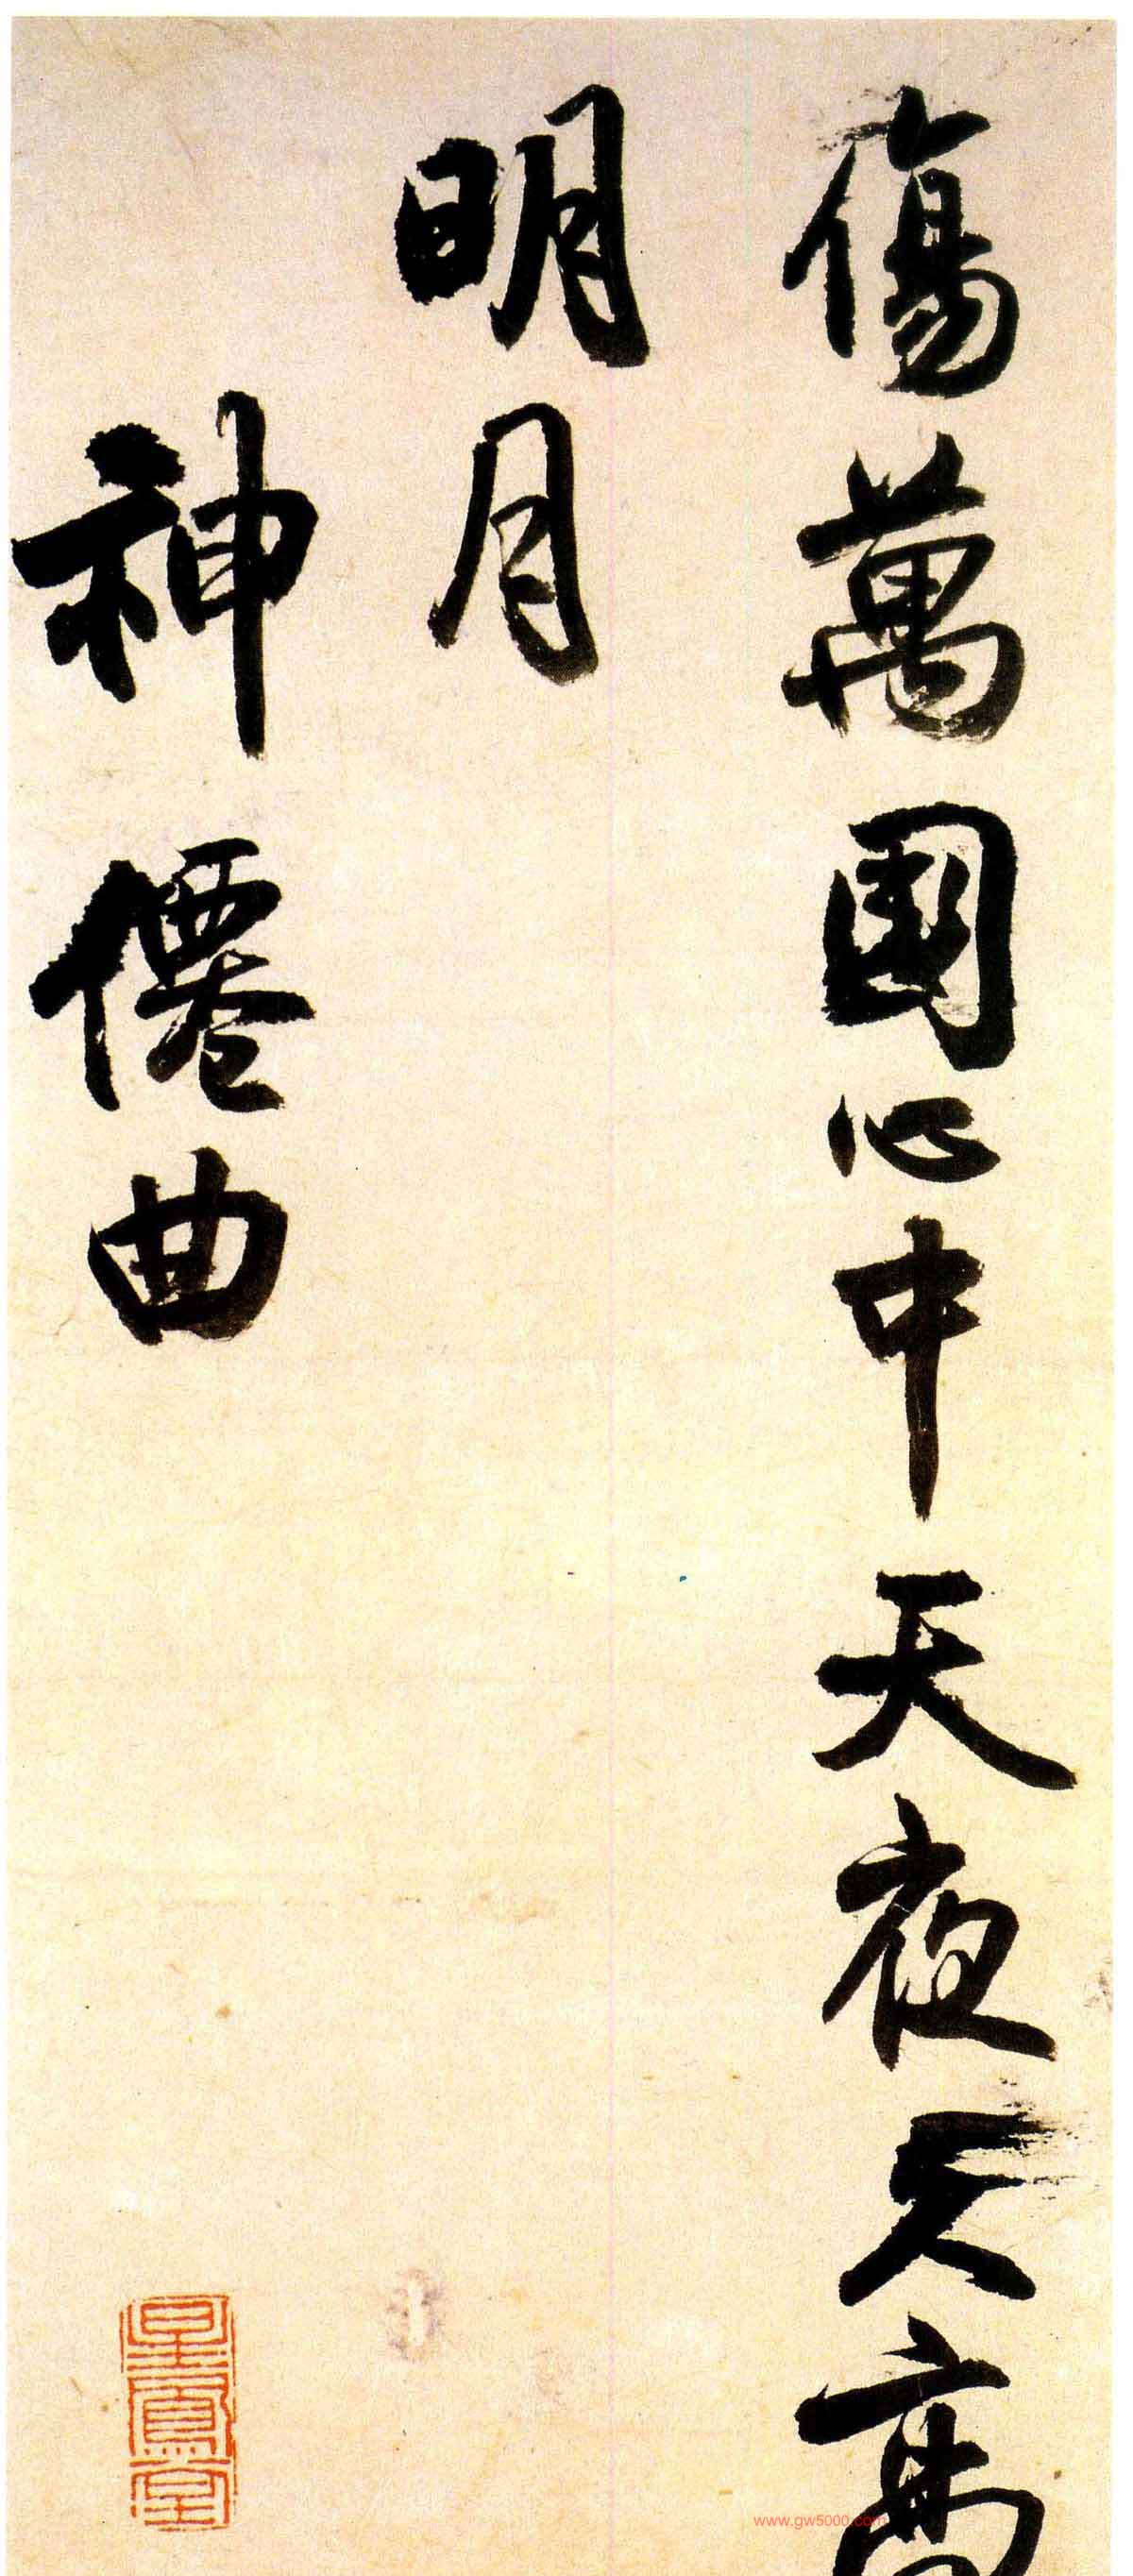 傷萬國心中天夜久高
明月
神僊曲
www.gw5000.com